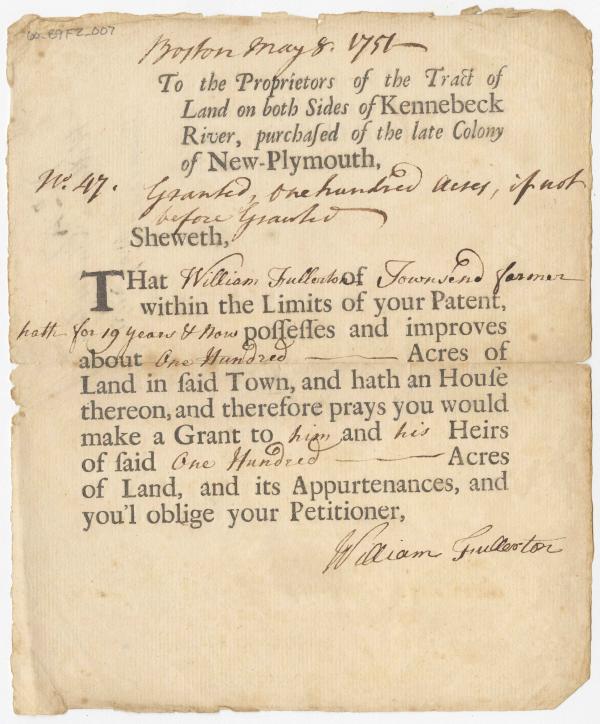 60-E9F2_007
Boston May 8. 1751
To the Proprietors of the Tract of
Land on both Sides of Kennebeck
River, purchaſed of the late Colony
of New-Plymouth,
No. 47. Granted, One hundred Acres, if not
before Granted
Sheweth,
THat William Fullerton of Townsend farmer
within the Limits of your Patent,
hath for 19 years & Now poſſeſſes and improves
about One Hundred Acres of
Land in ſaid Town, and hath an Houſe
thereon, and therefore prays you would
make a Grant to him and his Heirs
of ſaid One Hundred Acres
of Land, and its Appurtenances, and
you'l oblige your Petitioner,
William Fullerton